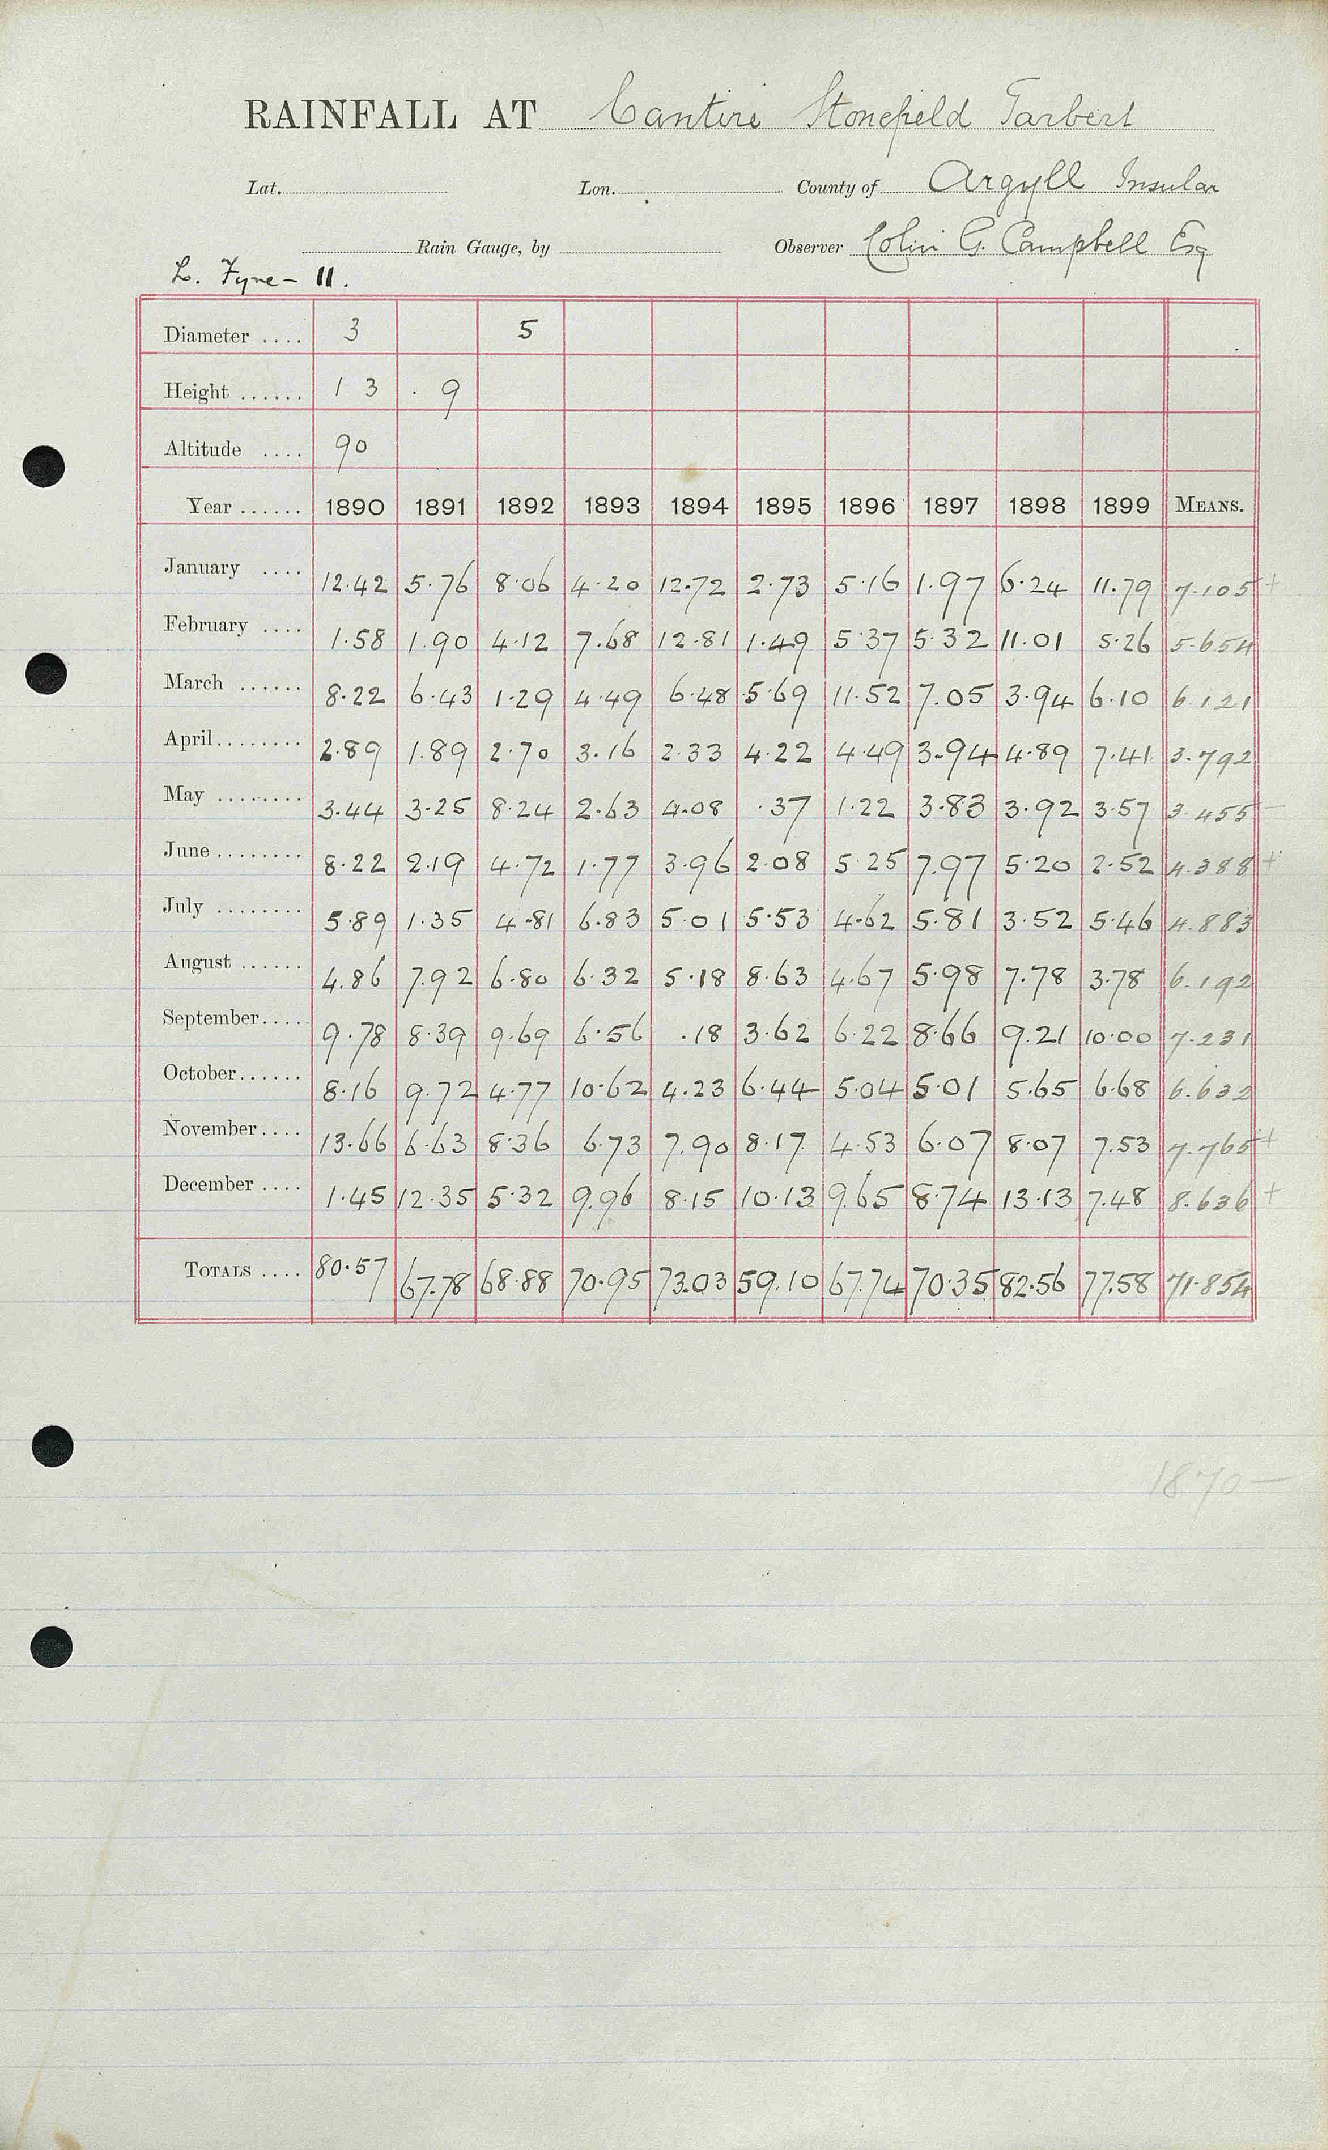 RAINFALL AT Cantire Stonefield Tarbert
Lat. Lon. County of Argyll Insular
Rain Gauge, by Observer Colin G. Campbell Esq
L. Fyne - 11.
Diameter .... 3 5
Height ...... 1 3 . 9
Altitude .... 90
Year ...... 1890 1891 1892 1893 1894 1895 1896 1897 1898 1899 MEANS.
January .... 12.42 5.76 8.06 4.20 12.72 2.73 5.16 1.97 6.24 11.79 7.105 +
February .... 1.58 1.90 4.12 7.68 12.81 1.49 5.37 5.32 11.01 5.26 5.654
March ...... 8.22 6.43 1.29 4.49 6.48 5.69 11.52 7.05 3.94 6.10 6.121
April........ 2.89 1.89 2.70 3.16 2.33 4.22 4.49 3.94 4.89 7.41 3.792
May ........ 3.44 3.25 8.24 2.63 4.08 .37 1.22 3.83 3.92 3.57 3.455 -
June........ 8.22 2.19 4.72 1.77 3.96 2.08 5.25 7.97 5.20 2.52 4.388 +
July ........ 5.89 1.35 4.81 6.83 5.01 5.53 4.62 5.81 3.52 5.46 4.883
August ...... 4.86 7.92 6.80 6.32 5.18 8.63 4.67 5.98 7.78 3.78 6.192
September.... 9.78 8.39 9.69 6.56 .18 3.62 6.22 8.66 9.21 10.00 7.231
October...... 8.16 9.72 4.77 10.62 4.23 6.44 5.04 5.01 5.65 6.68 6.632
November.... 13.66 6.63 8.36 6.73 7.90 8.17 4.53 6.07 8.07 7.53 7.765 +
December .... 1.45 12.35 5.32 9.96 8.15 10.13 9.65 8.74 13.13 7.48 8.636 +
TOTALS .... 80.57 67.78 68.88 70.95 73.03 59.10 67.74 70.35 82.56 77.58 71.854
1870-